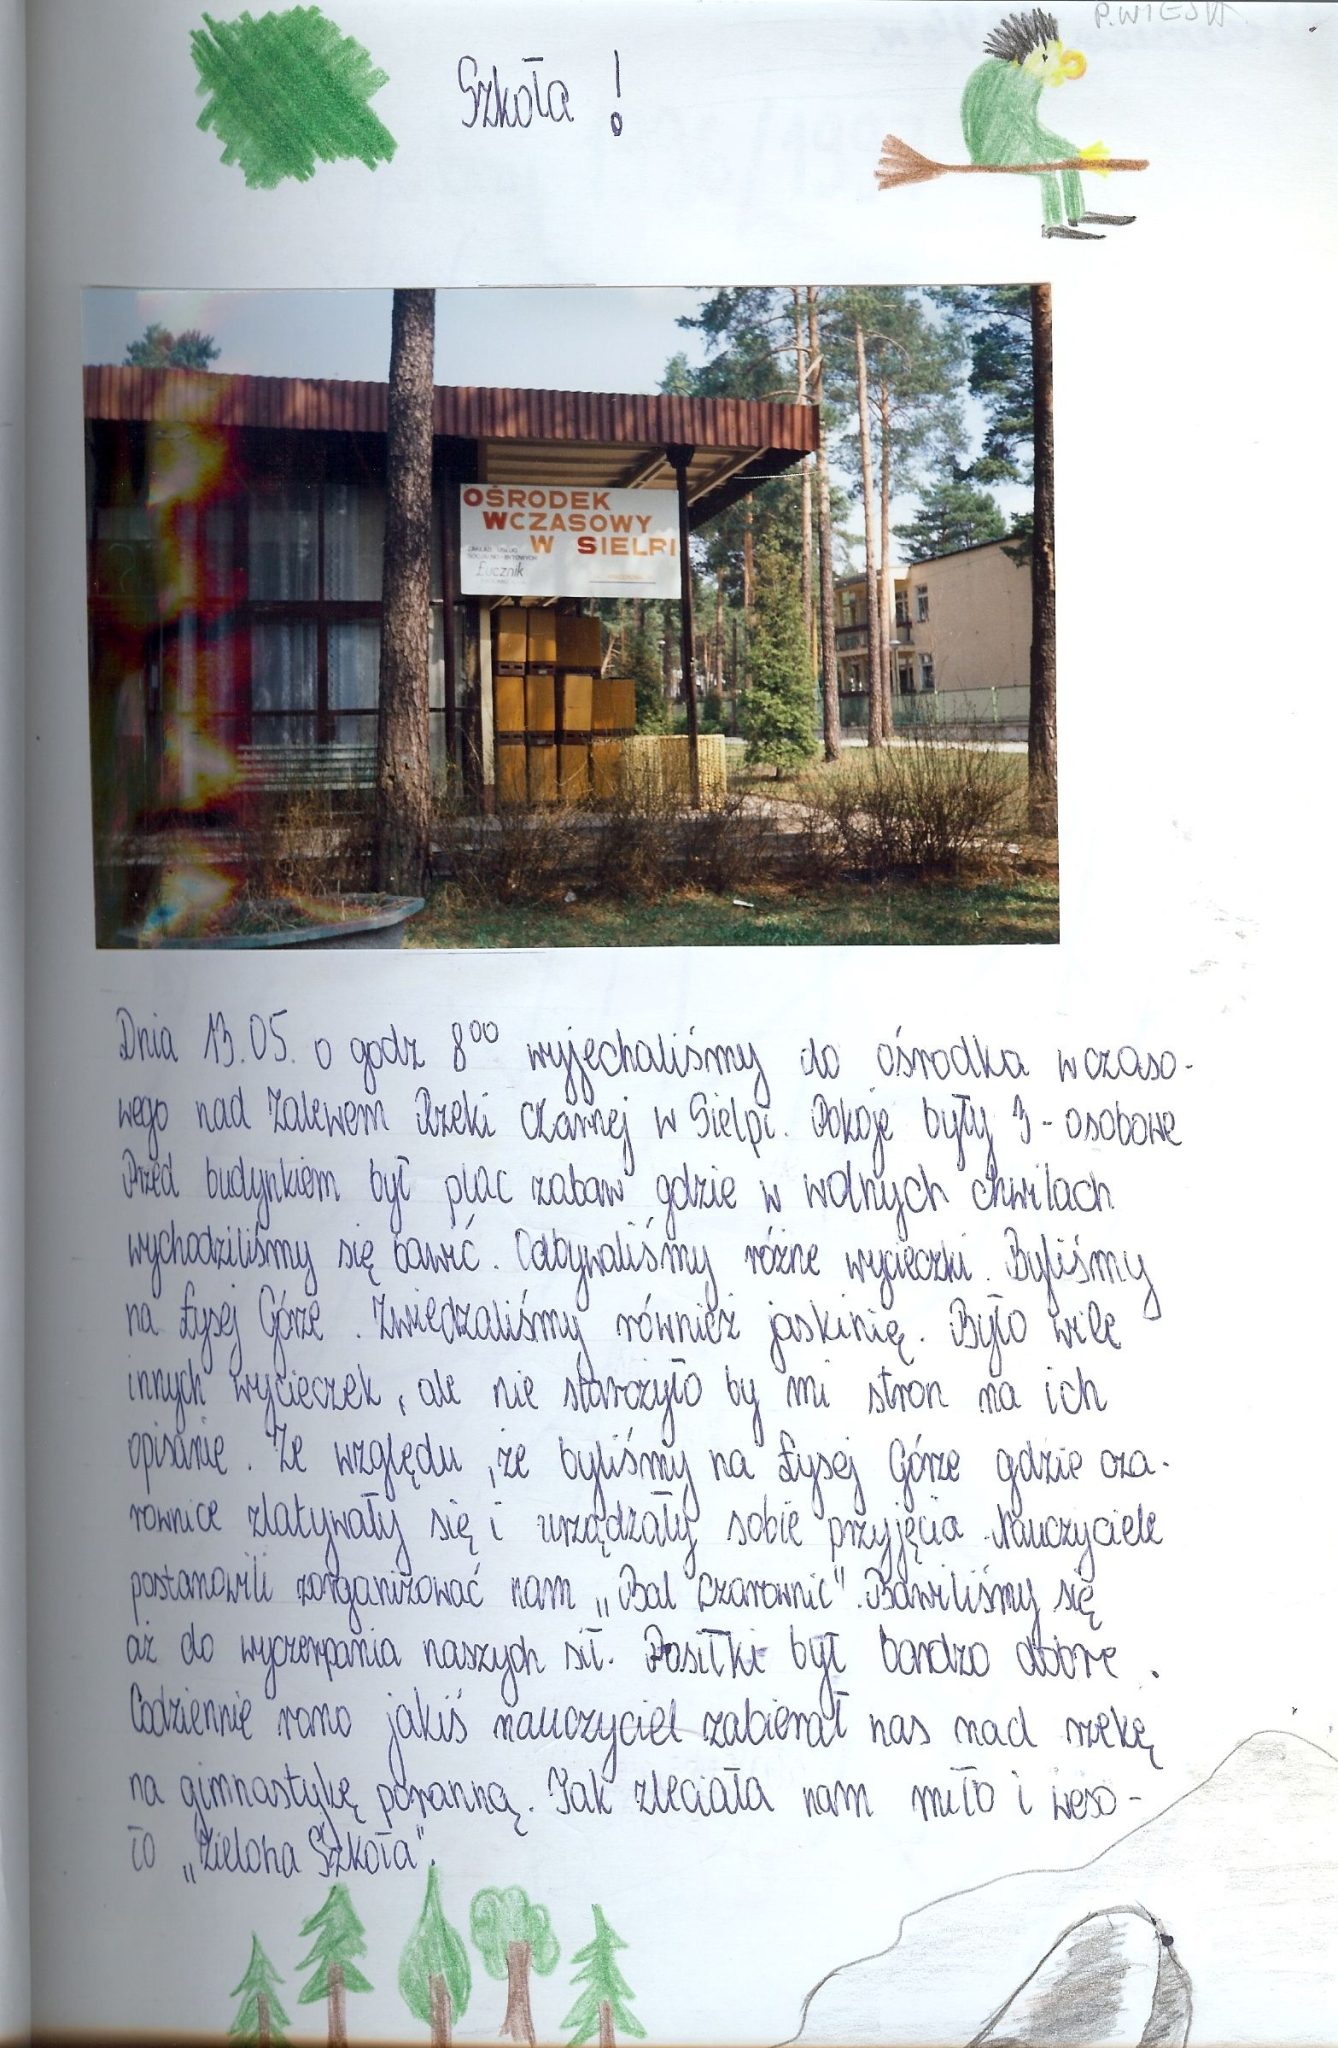 P. WIESŁA
Szkoła !
OŚRODEK
WCZASOWY
W SIELPI
ZAKŁAD USŁUG
SOCJALNO-BYTOWYCH
Łucznik
Dnia 13.05. o godz 8⁰⁰ wyjechaliśmy do ośrodka wczaso-
wego nad Zalewem Rzeki Czarnej w Sielpi. Pokoje były 3-osobowe
Przed budynkiem był plac zabaw gdzie w wolnych chwilach
wychodziliśmy się bawić. Odbywaliśmy różne wycieczki. Byliśmy
na Łysej Górze. Zwiedzaliśmy również jaskinię. Było wile
innych wycieczek, ale nie starczyło by mi stron na ich
opisanie. Ze względu, że byliśmy na Łysej Górze gdzie cza-
rownice zlatywały się i urządzały sobie przyjęcia. Nauczyciele
postanowili zorganizować nam „Bal Czarownic". Bawiliśmy się
aż do wyczerpania naszych sił. Posiłki był bardzo dobre.
Codziennie rano jakiś nauczyciel zabierał nas nad rzekę
na gimnastykę poranną. Tak zleciała nam miło i weso-
ło „Zielona Szkoła".